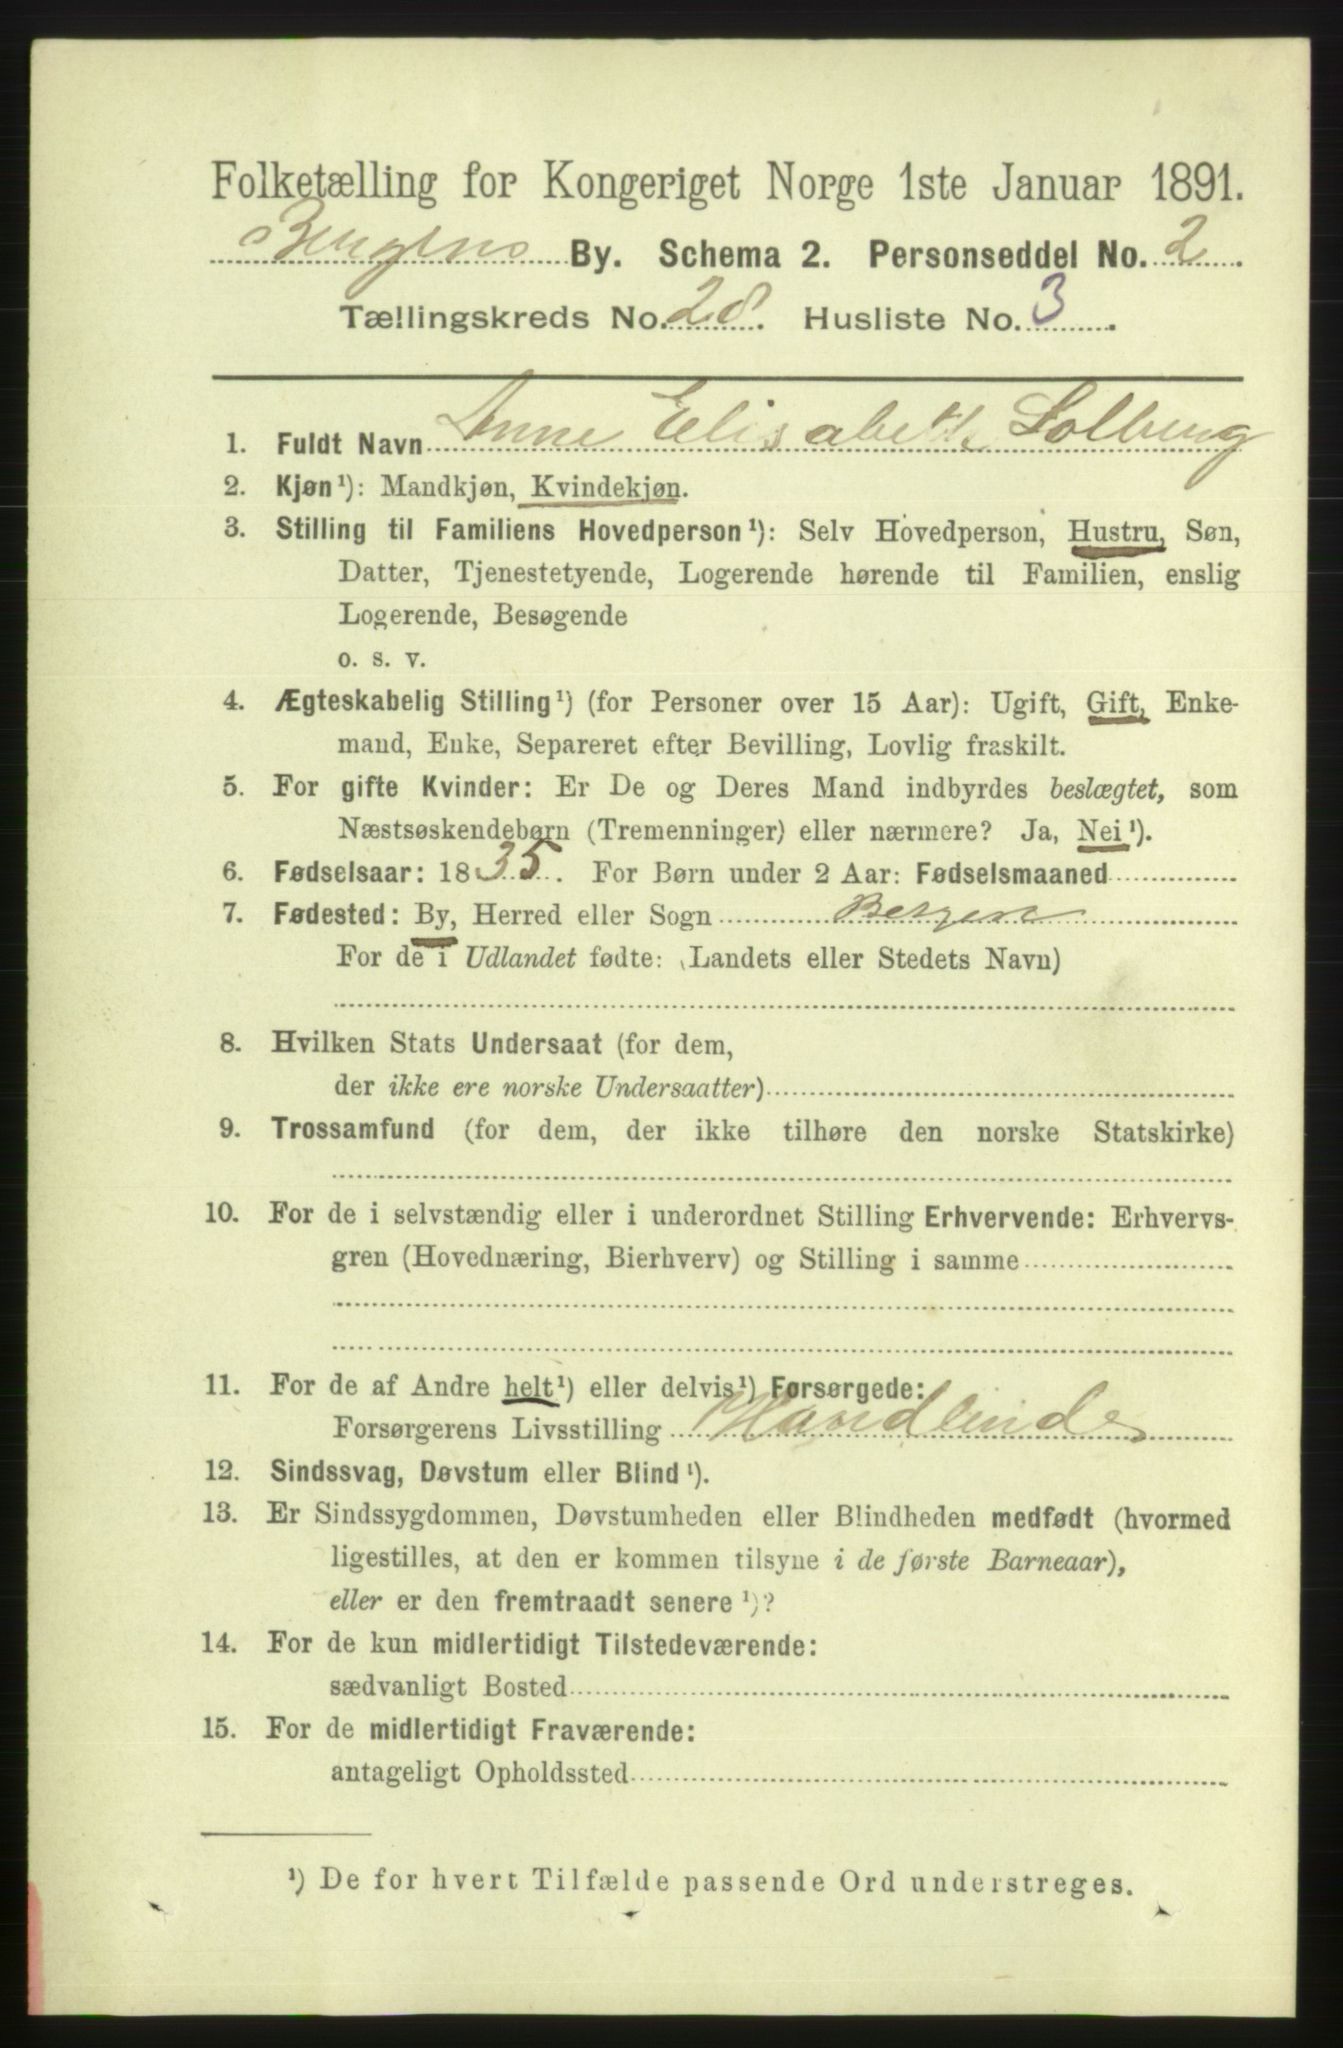 Folketælling for Kongeriget Norge 1ste Januar 1891.
Bergens By. Schema 2. Personseddel No. 2.
Tællingskreds No. 28. Husliste No. 3.
1. Fuldt Navn Anne Elisabeth Solberg
2. Kjøn¹): Mandkjøn, Kvindekjøn.
3. Stilling til Familiens Hovedperson¹): Selv Hovedperson, Hustru, Søn,
Datter, Tjenestetyende, Logerende hørende til Familien, enslig
Logerende, Besøgende
o. s. v.
4. Ægteskabelig Stilling¹) (for Personer over 15 Aar): Ugift, Gift, Enke-
mand, Enke, Separeret efter Bevilling, Lovlig fraskilt.
5. For gifte Kvinder: Er De og Deres Mand indbyrdes beslægtet, som
Næstsøskendebørn (Tremenninger) eller nærmere? Ja, Nei¹).
6. Fødselsaar: 1835. For Børn under 2 Aar: Fødselsmaaned
7. Fødested: By, Herred eller Sogn Bergen
For de i Udlandet fødte: (Landets eller Stedets Navn)
8. Hvilken Stats Undersaat (for dem,
der ikke ere norske Undersaatter)
9. Trossamfund (for dem, der ikke tilhøre den norske Statskirke)
10. For de i selvstændig eller i underordnet Stilling Erhvervende: Erhvervs-
gren (Hovednæring, Bierhverv) og Stilling i samme
11. For de af Andre helt¹) eller delvis¹) Forsørgede:
Forsørgerens Livsstilling Handlende
12. Sindssvag, Døvstum eller Blind¹).
13. Er Sindssygdommen, Døvstumheden eller Blindheden medfødt (hvormed
ligestilles, at den er kommen tilsyne i de første Barneaar),
eller er den fremtraadt senere¹)?
14. For de kun midlertidigt Tilstedeværende:
sædvanligt Bosted
15. For de midlertidigt Fraværende:
antageligt Opholdssted
¹) De for hvert Tilfælde passende Ord understreges.